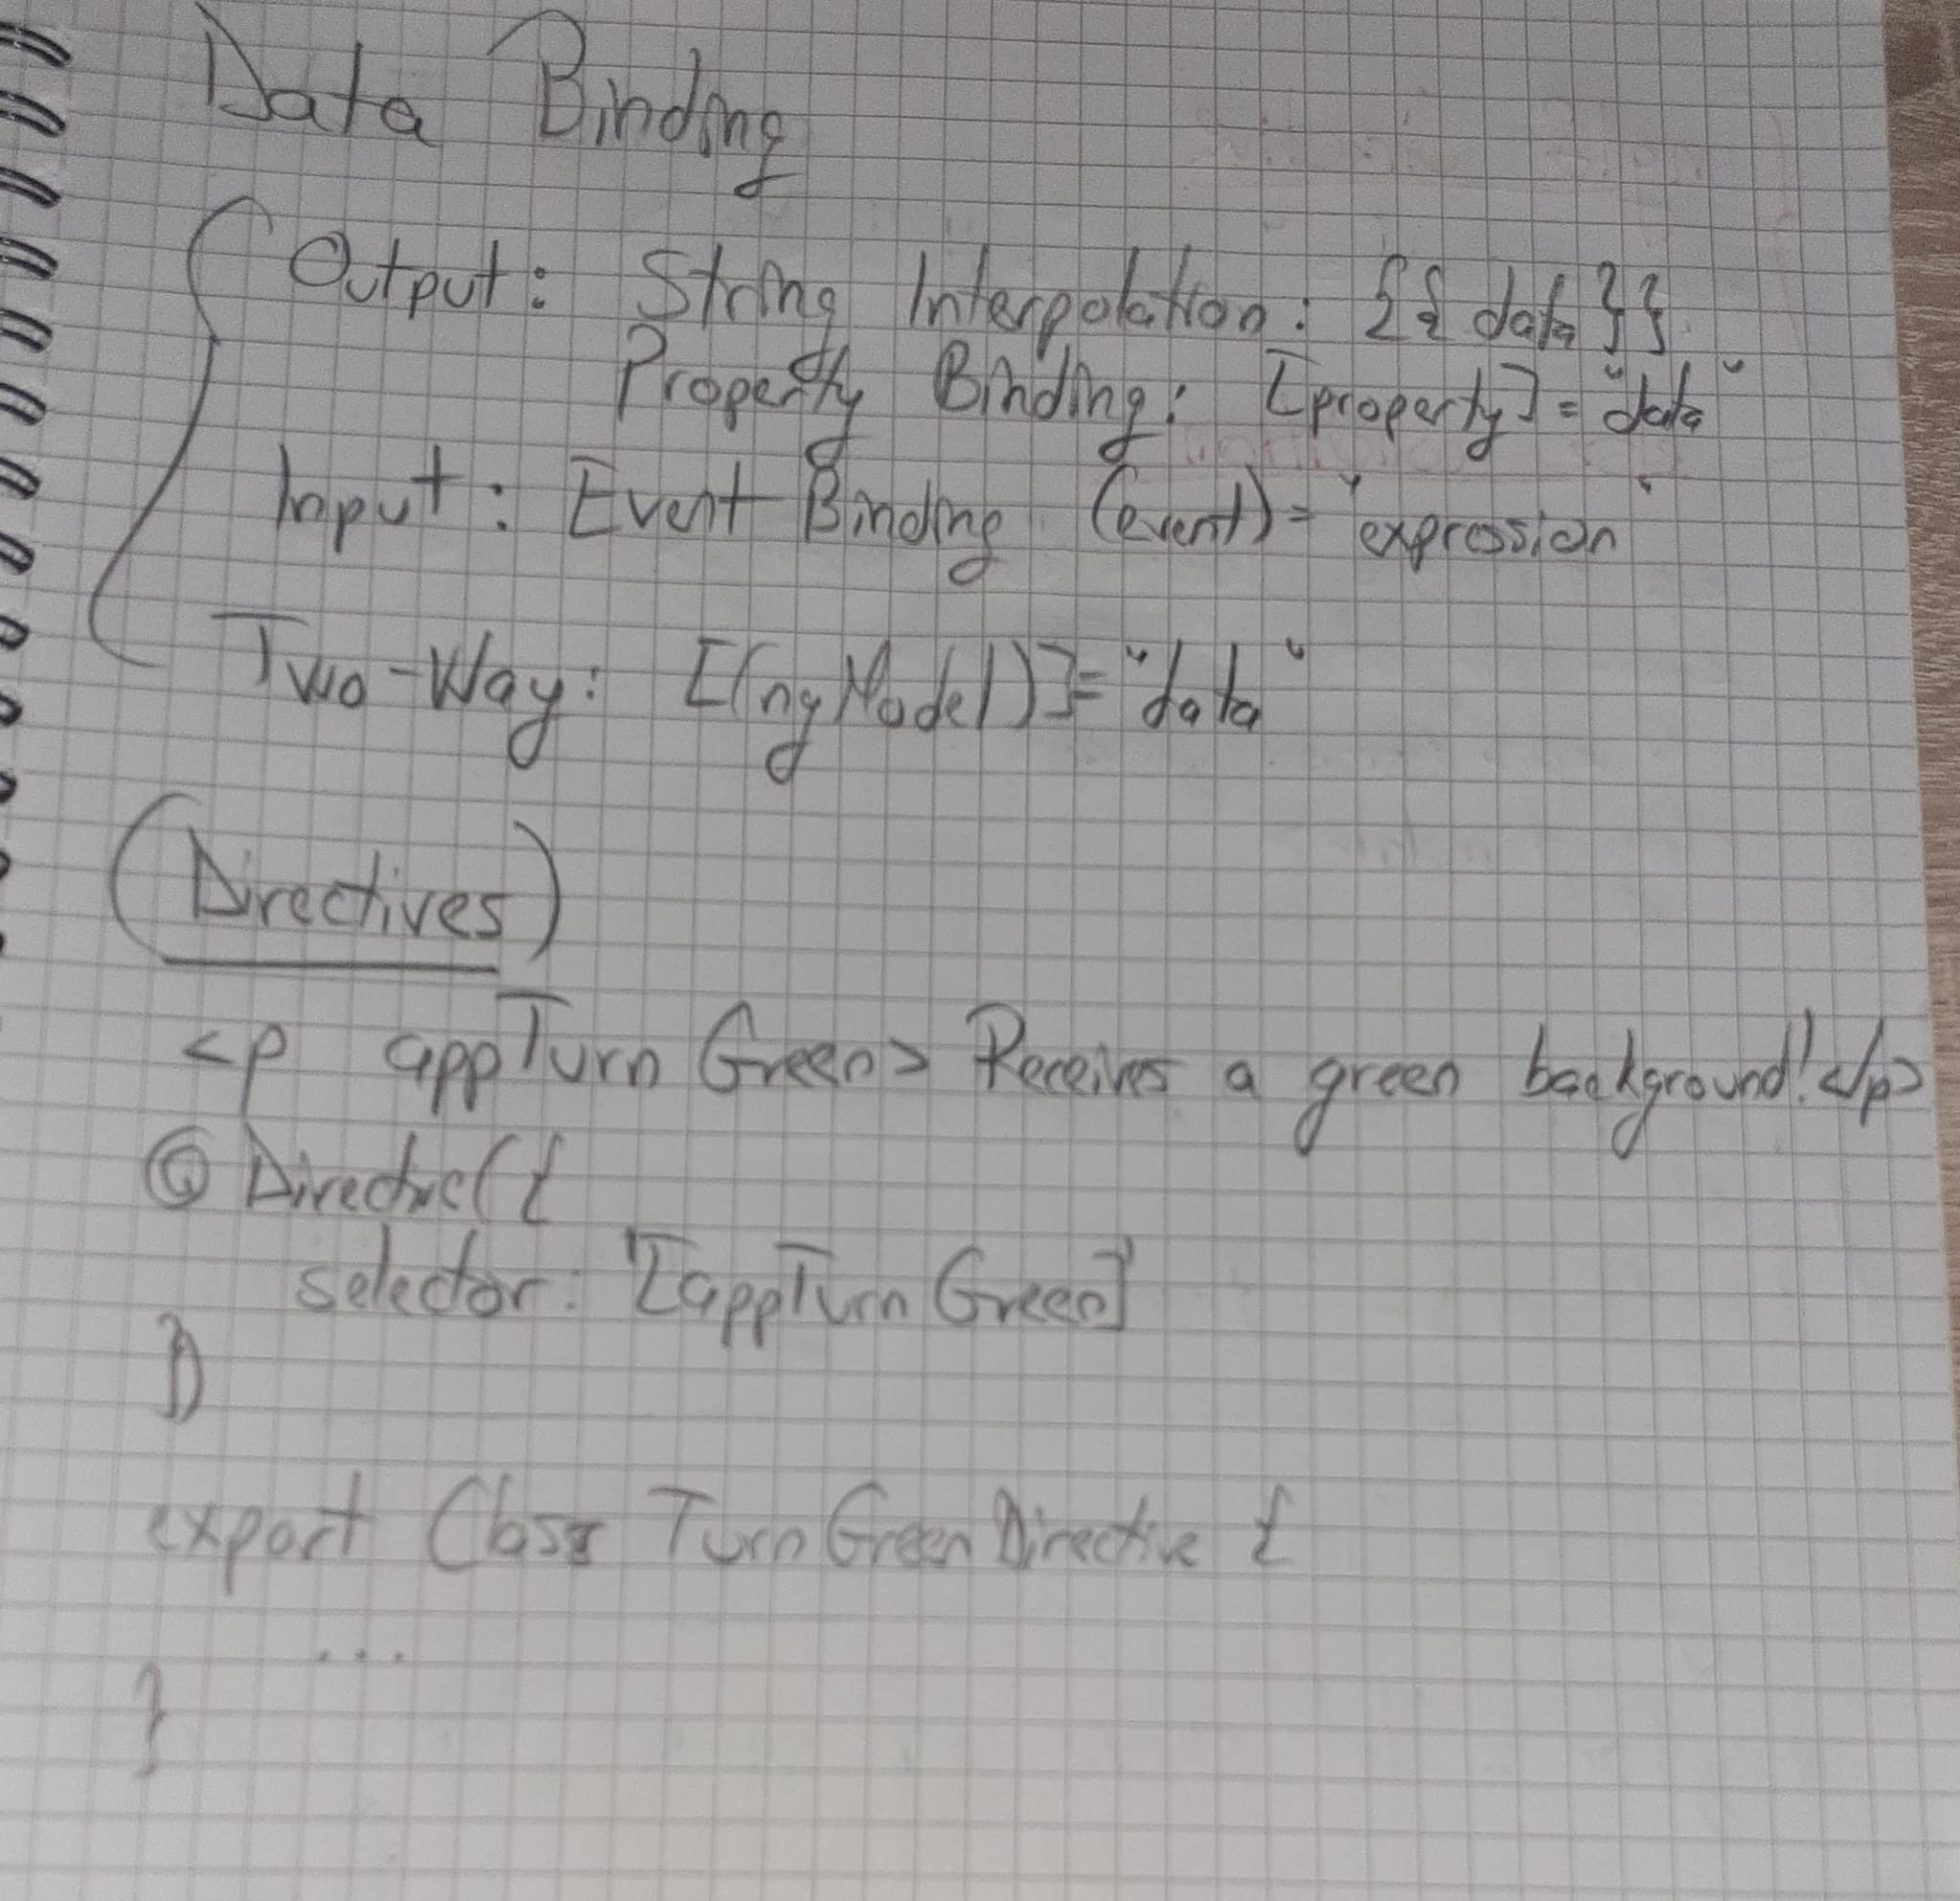 Data Binding
Output: String Interpolation: {{ data }}
Property Binding: [property] = "data"
Input: Event Binding (event) = "expression"
Two-Way: [(ngModel)] = "data"
(Directives)
<p appTurnGreen> Receives a green background! </p>
@Directive({
selector: '[appTurnGreen]'
})
export Class TurnGreenDirective {
...
}